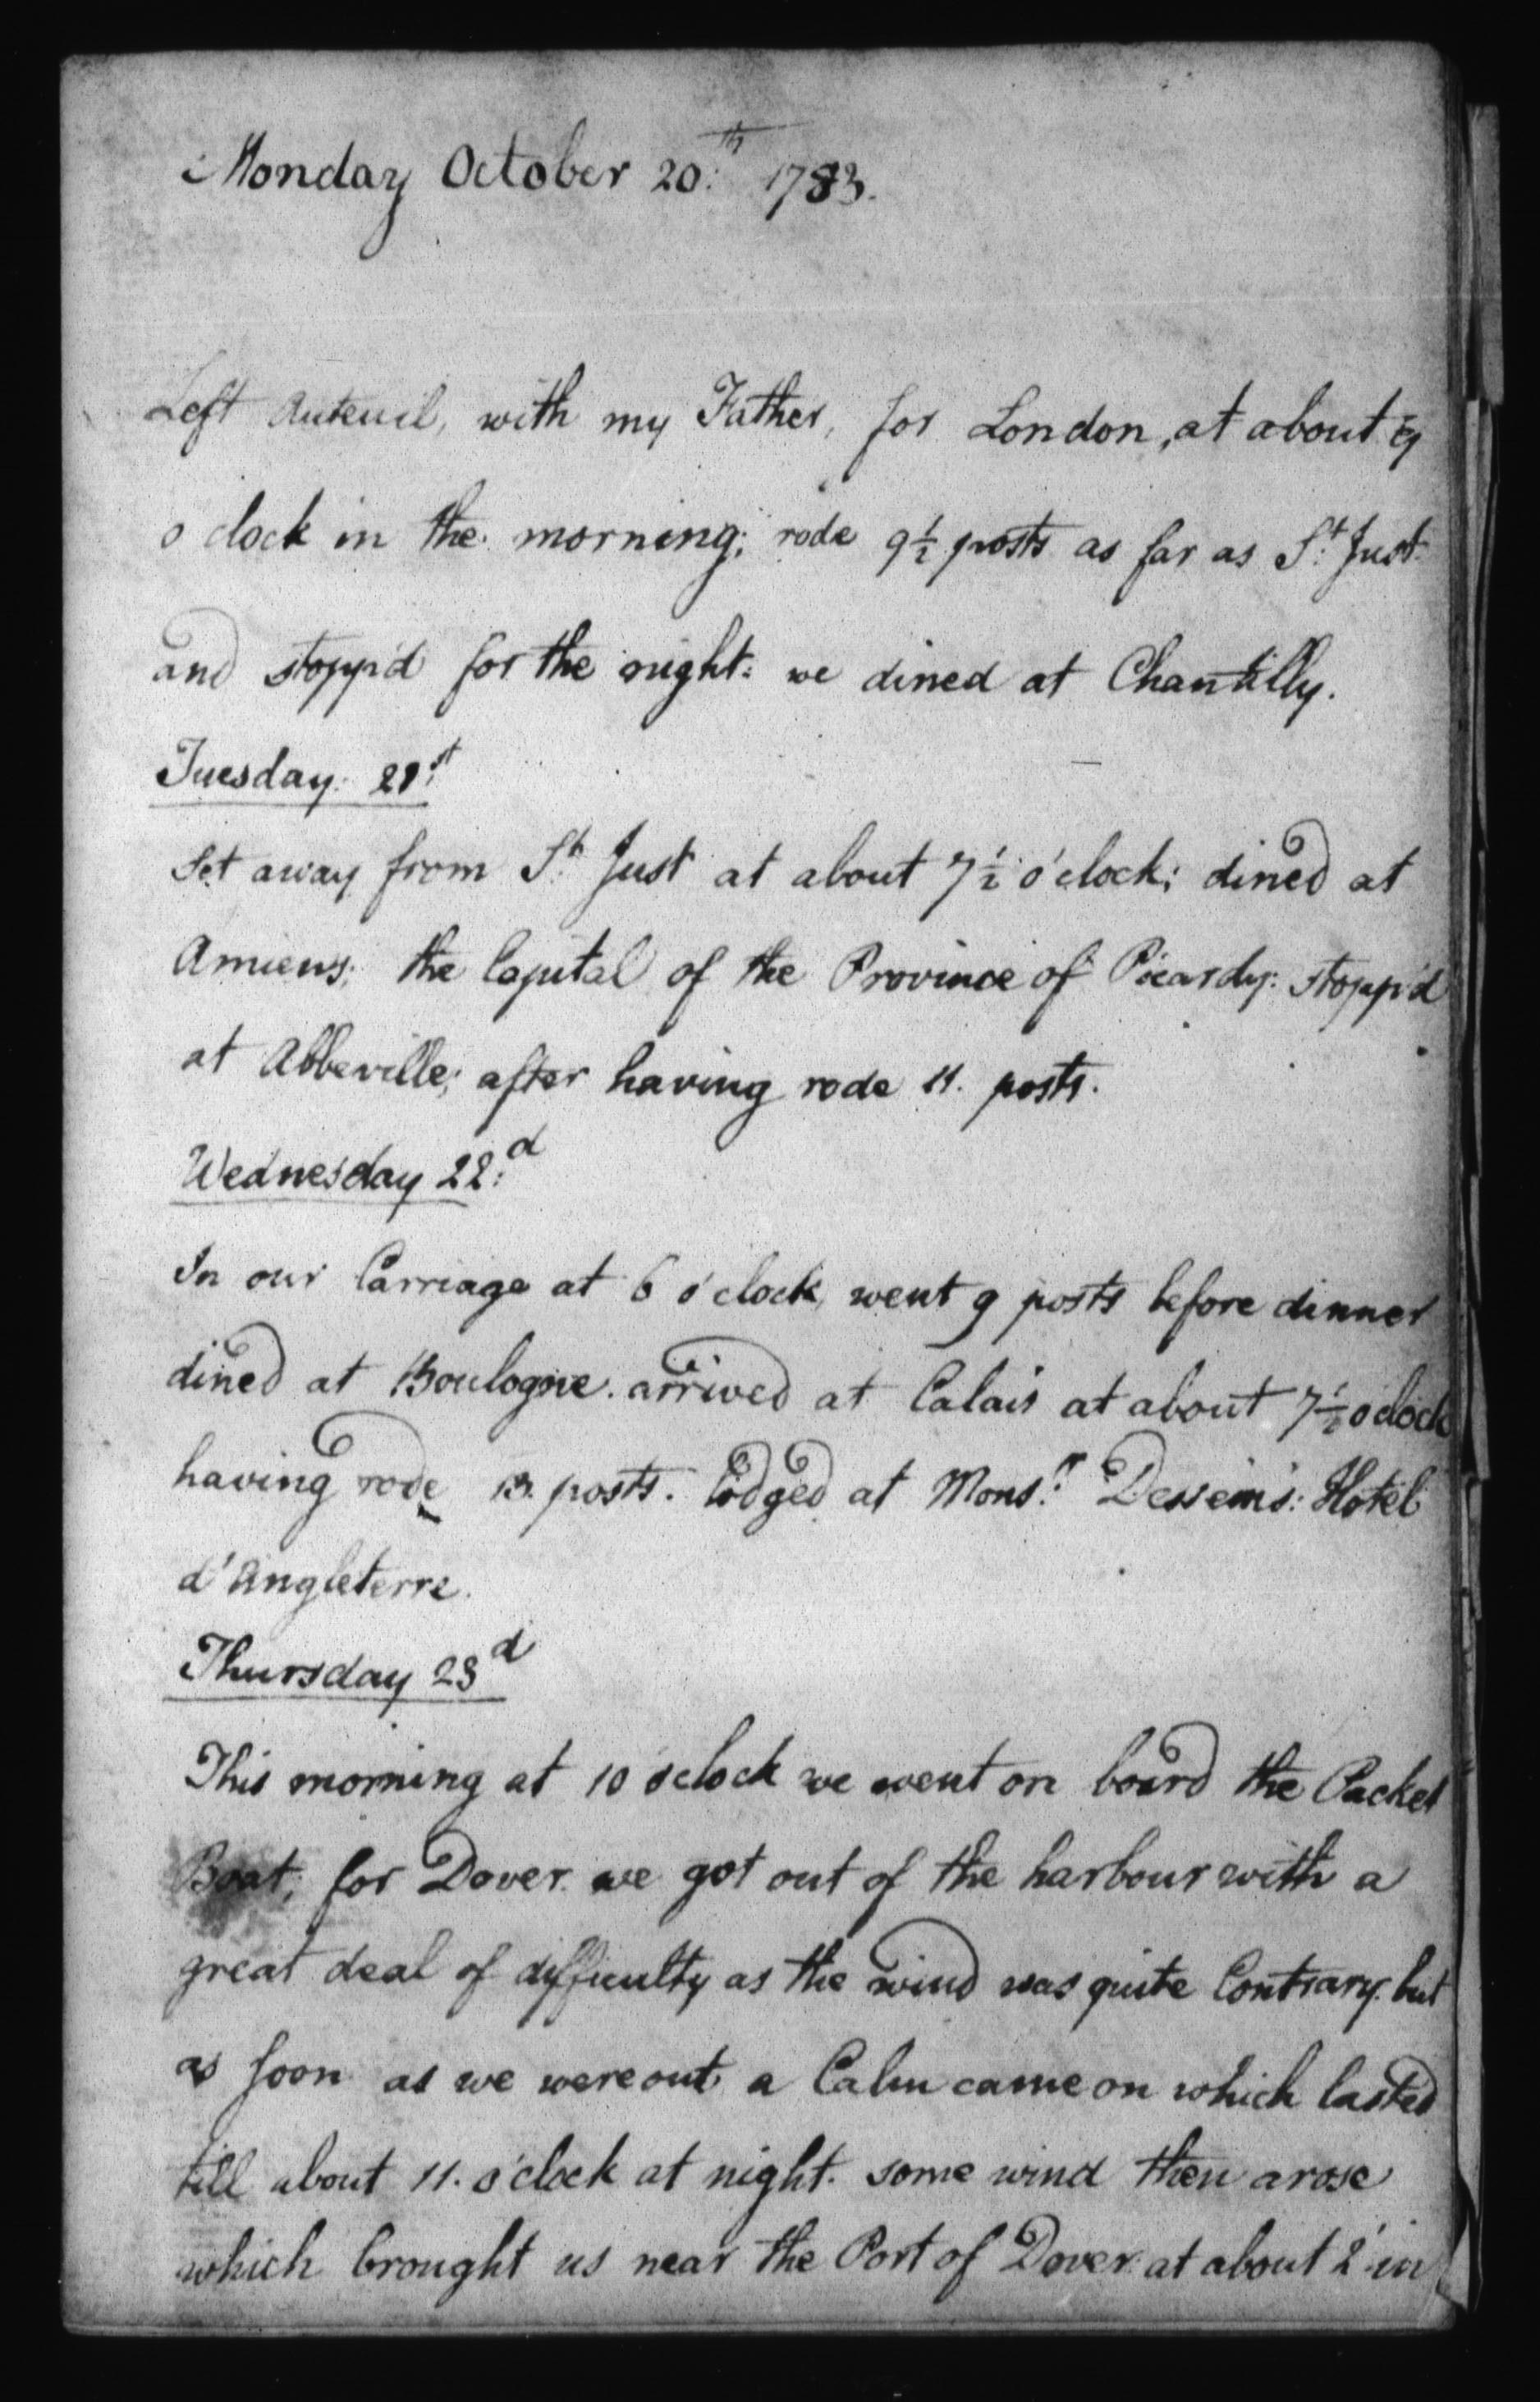 Monday October 20:th 1783.
Left Auteuil, with my Father, for London, at about
o clock in the morning; rode 9½ posts as far as St. Just
and stopp'd for the night: we dined at Chantilly.
Tuesday. 21:st
Set away from St. Just at about 7½ o'clock; dined at
Amiens; the Capital of the Province of Picardy: stopp'd
at Abbeville; after having rode 11. posts.
Wednesday 22:d
In our Carriage at 6 o'clock, went 9 posts before dinner
dined at Boulogne. arrived at Calais at about 7½ o'clock
having rode 13. posts. lodged at Mons:r Dessein's: Hotel
d'Angleterre.
Thursday 23d
This morning at 10 o'clock we went on board the Packet
Boat, for Dover. we got out of the harbour with a
great deal of difficulty as the wind was quite Contrary. but
as soon as we were out, a Calm came on which lasted
till about 11. o'clock at night. some wind then arose
which brought us near the Port of Dover at about 2 in